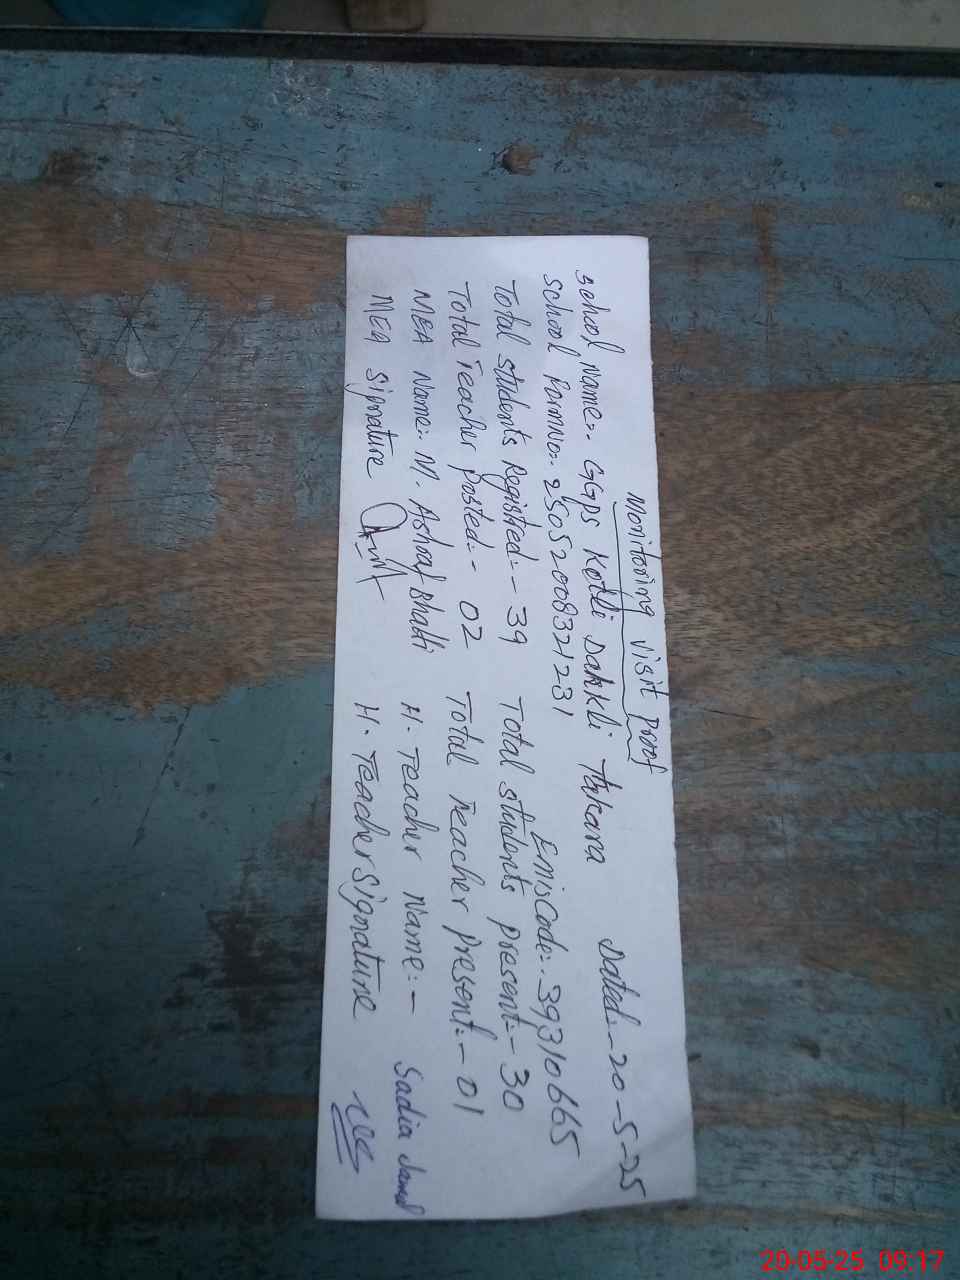 Monitoring Visit Proof
School Name:- GGPS Kotli Dakkli Thkara Dated:- 20-5-25
School FormNo:- 25052008321231 EmisCode:- 39310665
Total students Registred:- 39 Total students present:- 30
Total Teacher posted:- 02 Total Teacher present:- 01
MEA Name:- M. Ashraf Bhatti H. Teacher Name:- Sadia Jamal
MEA Signature H. Teacher Signature
20-05-25 09:17